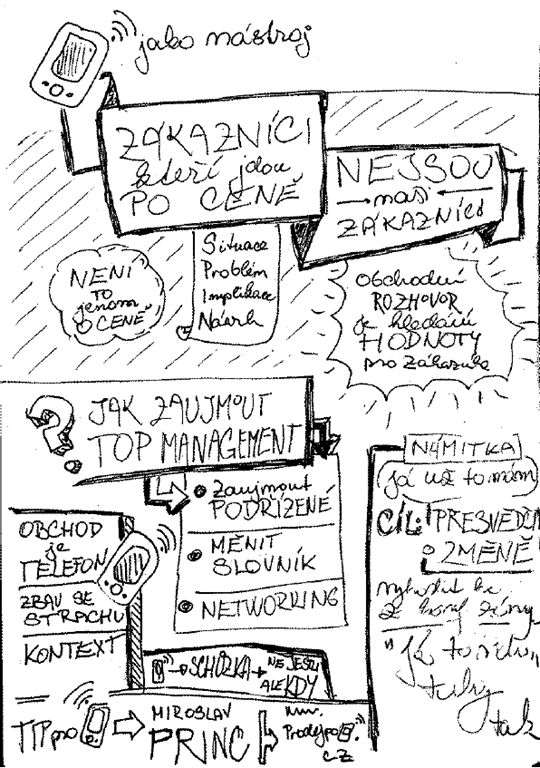 jako nástroj
ZÁKAZNÍCI
kteří jdou
PO CENĚ
NEJSOU
naši
ZÁKAZNÍCI
NENÍ
TO
jenom
O CENĚ
Situace
Problém
Implikace
Návrh
Obchodní
ROZHOVOR
je hledání
HODNOTY
pro zákazníka
?
JAK ZAUJMOUT
TOP MANAGEMENT
Zaujmout
PODŘÍZENÉ
MĚNIT
SLOVNÍK
NETWORKING
OBCHOD
je
TELEFON
ZBAV SE
STRACHU
KONTEXT
NÁMITKA
já už to mám
CÍL: PŘESVĚDČIT
o ZMĚNĚ
tak
SCHŮZKA
NE JESTLI
ALE KDY
TIP pro
MIROSLAV
PRINC
www.
Prodejpo
.cz